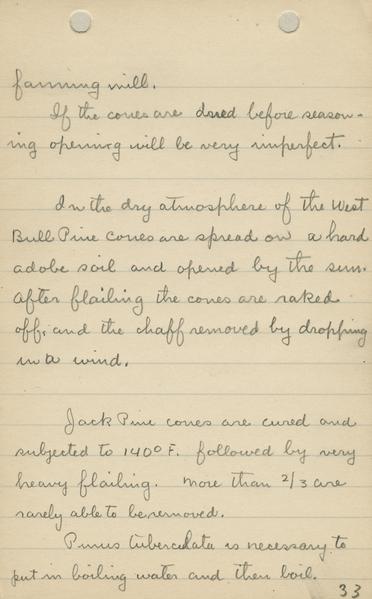 fanning mill.
If the cones are dried before season-
ing opening will be very imperfect.
In the dry atmosphere of the West
Bull Pine cones are spread on a hard
adobe soil and opened by the sun.
After flailing the cones are raked
off, and the chaff removed by dropping
in a wind.
Jack Pine cones are cured and
subjected to 140° F. followed by very
heavy flailing. More than 2/3 are
rarely able to be removed.
Pinus tuberculata is necessary to
put in boiling water and then boil.
33